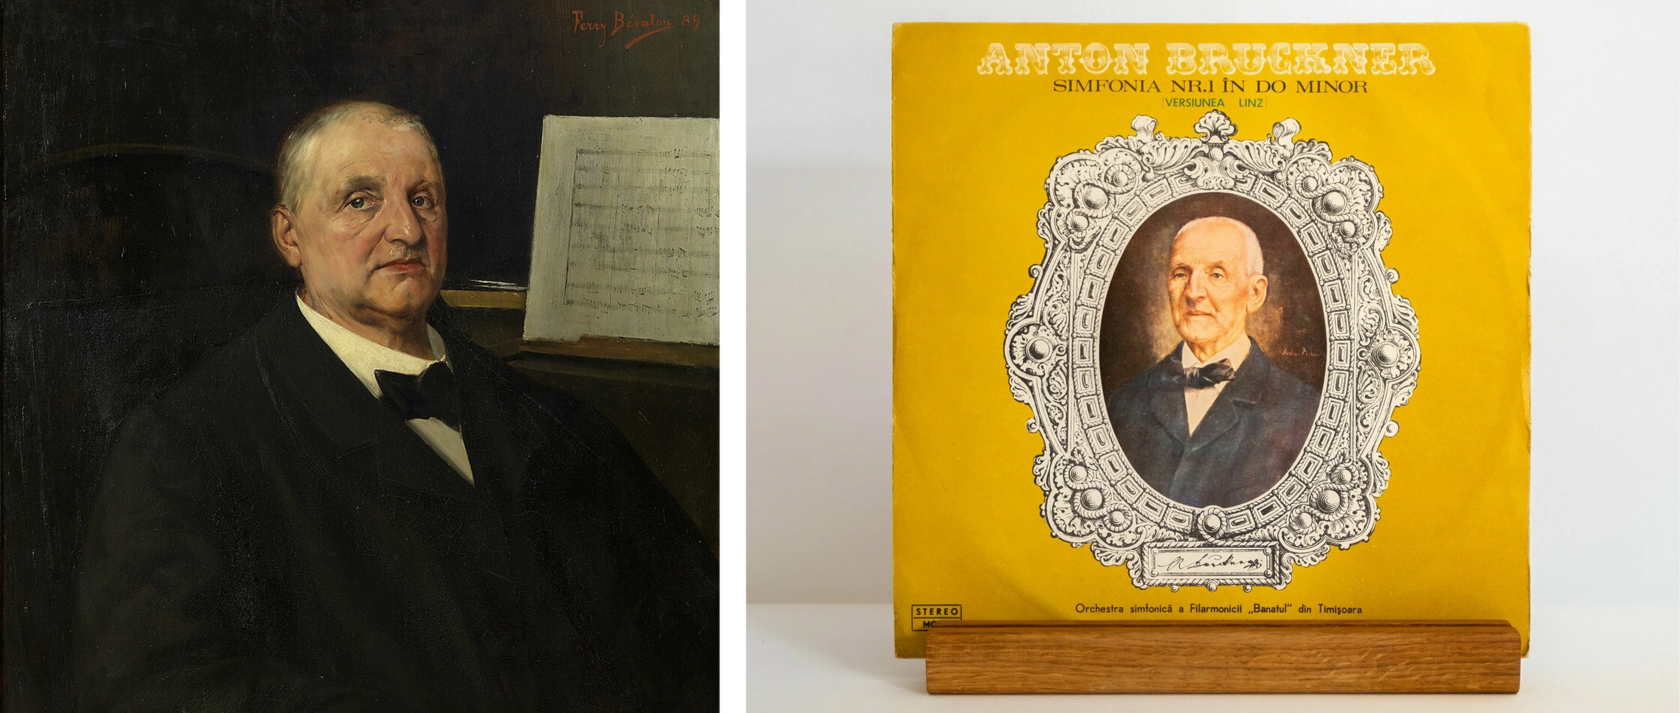 Ferry Bératon 89
ANTON BRUCKNER
SIMFONIA NR.1 ÎN DO MINOR
[VERSIUNEA LINZ]
Orchestra simfonică a Filarmonicii „Banatul” din Timișoara
STEREO